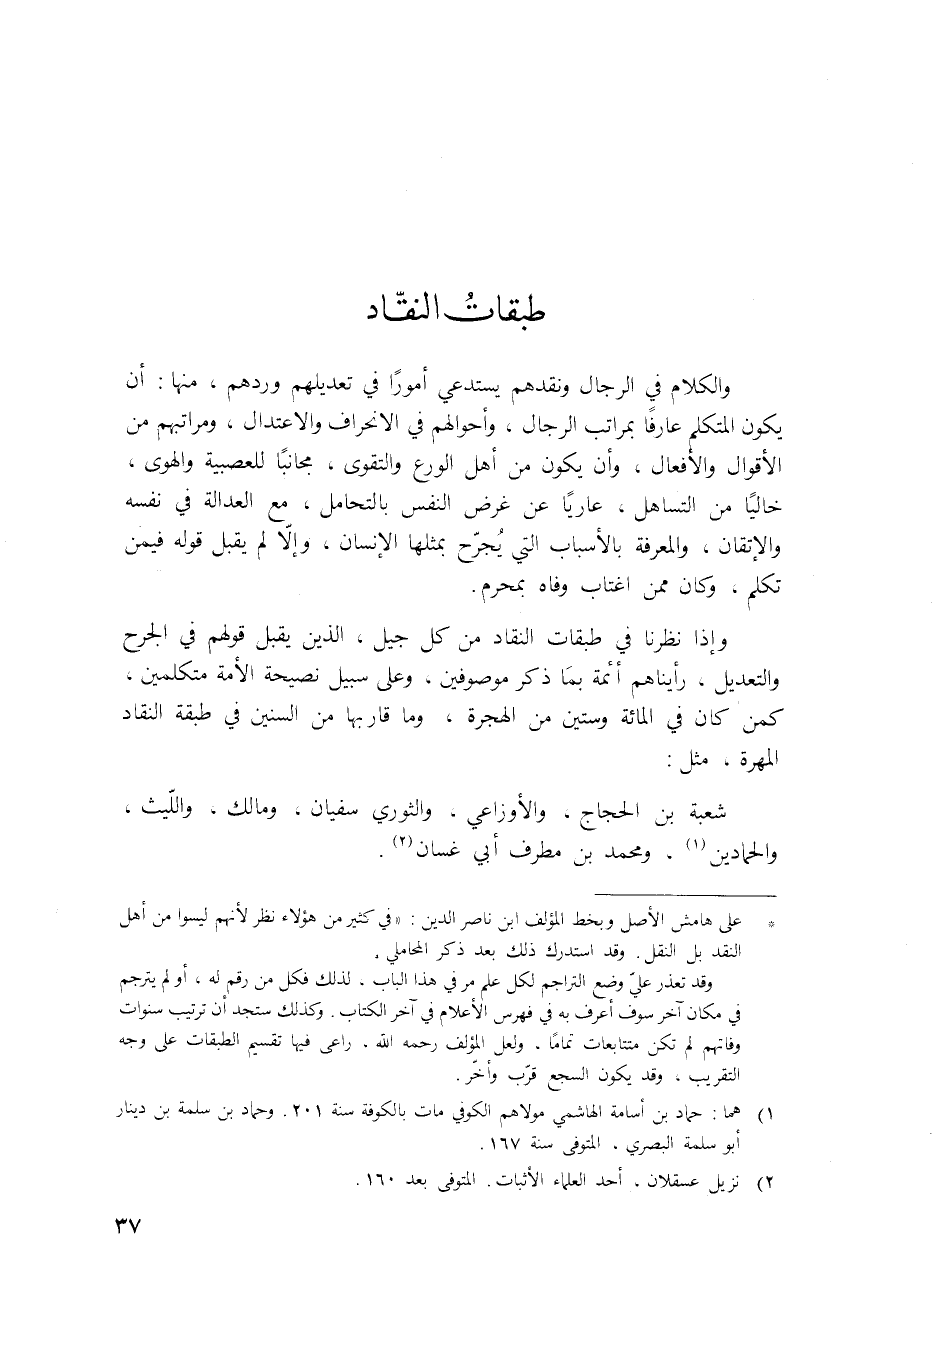 طبقاتُ النقّاد
والكلام في الرجال ونقدهم يستدعي أمورًا في تعديلهم وردهم ، منها : أن
يكون المتكلم عارفًا بمراتب الرجال ، وأحوالهم في الانحراف والاعتدال ، ومراتبهم من
الأقوال والأفعال ، وأن يكون من أهل الورع والتقوى ، مجانبًا للعصبية والهوى ،
خاليًا من التساهل ، عاريًا عن غرض النفس بالتحامل ، مع العدالة في نفسه
والإتقان ، والمعرفة بالأسباب التي يُجرّح بمثلها الإنسان ، وإلّا لم يقبل قوله فيمن
تكلم ، وكان ممن اغتاب وفاه بمحرم .
وإذا نظرنا في طبقات النقاد من كل جيل ، الذين يقبل قولهم في الجرح
والتعديل ، رأيناهم أئمة بمَا ذكر موصوفين ، وعلى سبيل نصيحة الأمة متكلمين ،
كمن كان في المائة وستين من الهجرة ، وما قاربها من السنين في طبقة النقاد
المهرة ، مثل :
شعبة بن الحجاج ، والأوزاعي ، والثوري سفيان ، ومالك ، واللّيث ،
والحمادين (١) ، ومحمد بن مطرف أبي غسان (٢) .
* على هامش الأصل وبخط المؤلف ابن ناصر الدين : «في كثير من هؤلاء نظر لأنهم ليسوا من أهل
النقد بل النقل . وقد استدرك ذلك بعد ذكر المحاملي .
وقد تعذر عليّ وضع التراجم لكل علم مر في هذا الباب ، لذلك فكل من رقم له ، أو لم يترجم
في مكان آخر سوف أعرف به في فهرس الأعلام في آخر الكتاب . وكذلك ستجد أن ترتيب سنوات
وفاتهم لم تكن متتابعات تمامًا ، ولعل المؤلف رحمه الله ، راعى فيها تقسيم الطبقات على وجه
التقريب ، وقد يكون السجع قرّب وأخّر .
١) هما : حماد بن أسامة الهاشمي مولاهم الكوفي مات بالكوفة سنة ٢٠١ . وحماد بن سلمة بن دينار
أبو سلمة البصري ، المتوفى سنة ١٦٧ .
٢) نزيل عسقلان ، أحد العلماء الأثبات . المتوفى بعد ١٦٠ .
٣٧